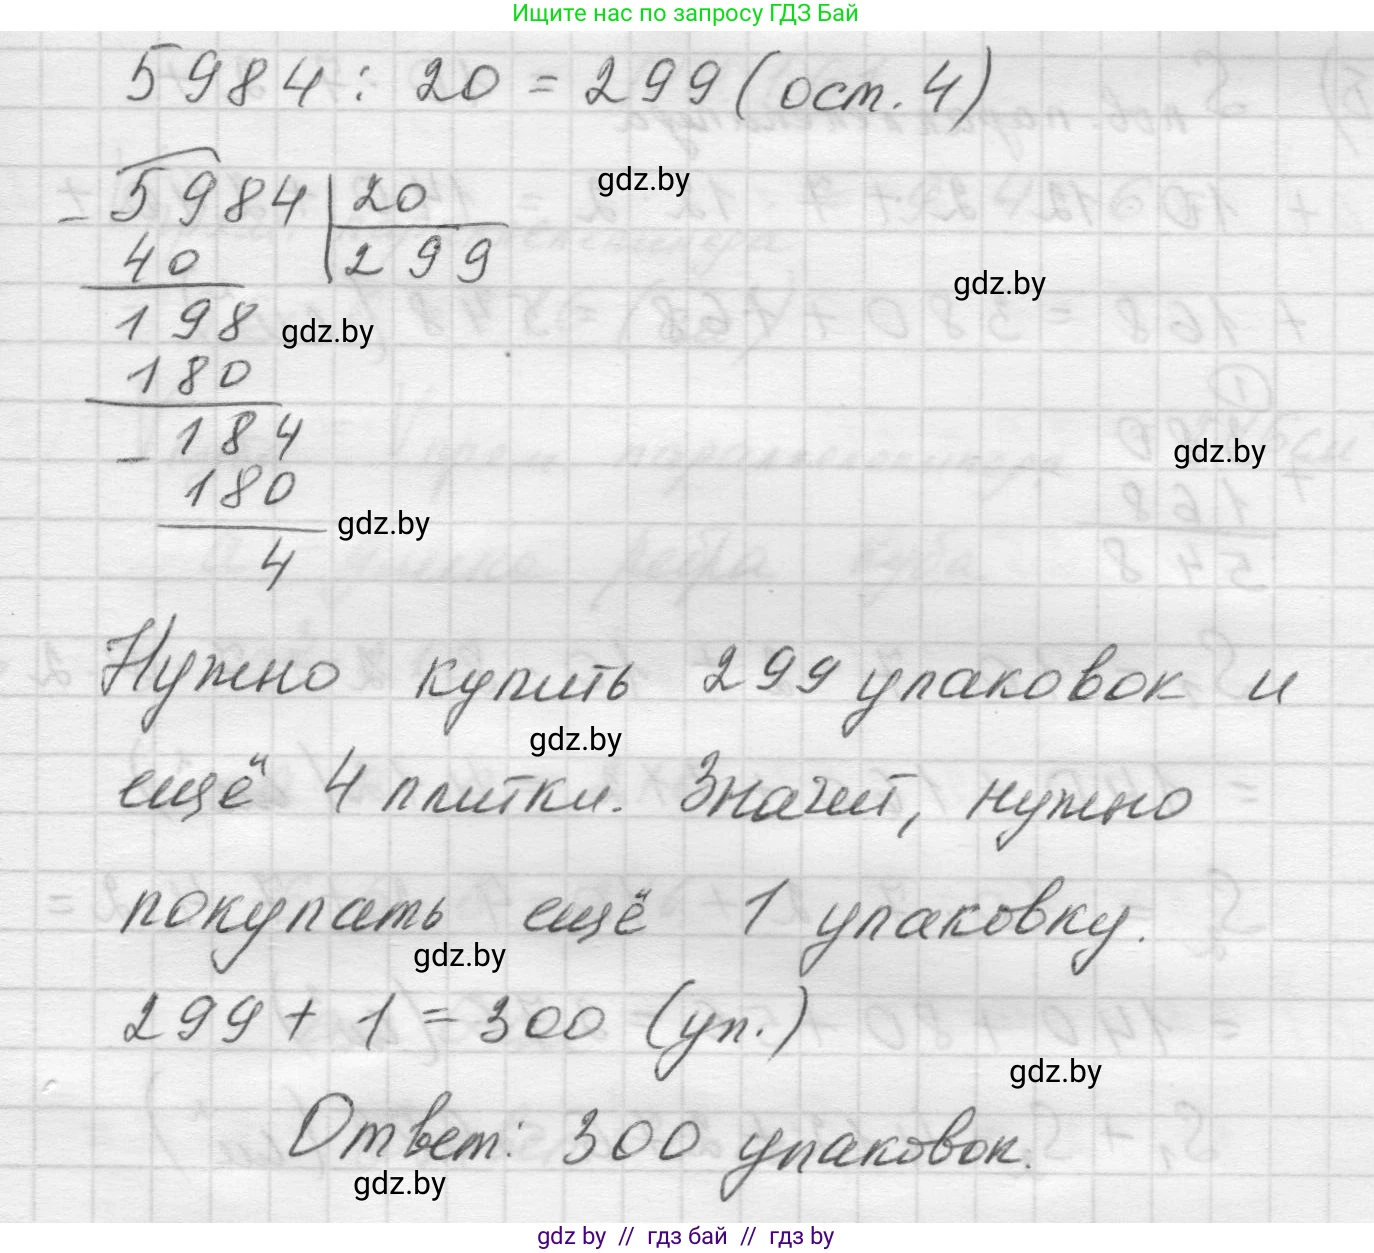 Ищите нас по запросу ГДЗ Бай
5984 : 20 = 299 (ост. 4)
gdz.by
- 5984 | 20
40 299
gdz.by
198 gdz.by
180
- 184
gdz.by
180
gdz.by
4
Нужно купить 299 упаковок и
gdz.by
ещё 4 плитки. Значит, нужно
покупать ещё 1 упаковку.
gdz.by
299 + 1 = 300 (уп.)
gdz.by
Ответ: 300 упаковок.
gdz.by
gdz by // гдз бай // gdz by